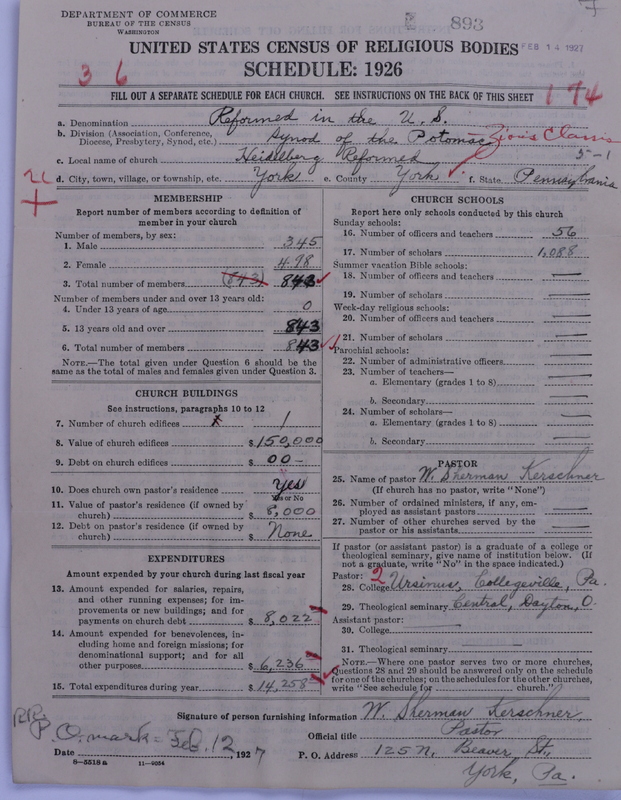 DEPARTMENT OF COMMERCE
BUREAU OF THE CENSUS
WASHINGTON
E 893
UNITED STATES CENSUS OF RELIGIOUS BODIES FEB 14 1927
SCHEDULE: 1926
3 6
FILL OUT A SEPARATE SCHEDULE FOR EACH CHURCH. SEE INSTRUCTIONS ON THE BACK OF THIS SHEET
174
a. Denomination Reformed in the U. S.
b. Division (Association, Conference, Diocese, Presbytery, Synod, etc.) Synod of the Potomac - Zions Classis
5-1
c. Local name of church Heidelberg Reformed
d. City, town, village, or township, etc. York e. County York f. State Pennsylvania
MEMBERSHIP
Report number of members according to definition of
member in your church
Number of members, by sex:
1. Male 345
2. Female 498
3. Total number of members (843) 843
Number of members under and over 13 years old:
4. Under 13 years of age 0
5. 13 years old and over 843
6. Total number of members 843
NOTE.—The total given under Question 6 should be
same as the total of males and females given under Question 3.
CHURCH BUILDINGS
See instructions, paragraphs 10 to 12
7. Number of church edifices 1
8. Value of church edifices $150,000
9. Debt on church edifices $ 00 -
10. Does church own pastor's residence Yes
Yes or No
11. Value of pastor's residence (if owned by
church) $ 8,000
12. Debt on pastor's residence (if owned by
church) $ None
EXPENDITURES
Amount expended by your church during last fiscal year
13. Amount expended for salaries, repairs,
and other running expenses; for im-
provements or new buildings; and for
payments on church debt $ 8,022
14. Amount expended for benevolences, in-
cluding home and foreign missions; for
denominational support; and for all
other purposes $ 6,236
15. Total expenditures during year $ 14,258
CHURCH SCHOOLS
Report here only schools conducted by this church
Sunday schools:
16. Number of officers and teachers 56
17. Number of scholars 1,088
Summer vacation Bible schools:
18. Number of officers and teachers
19. Number of scholars
Week-day religious schools:
20. Number of officers and teachers
21. Number of scholars
Parochial schools:
22. Number of administrative officers
23. Number of teachers—
a. Elementary (grades 1 to 8)
b. Secondary
24. Number of scholars—
a. Elementary (grades 1 to 8)
b. Secondary
PASTOR
25. Name of pastor W. Sherman Kerschner
(If church has no pastor, write "None")
26. Number of ordained ministers, if any, em-
ployed as assistant pastors
27. Number of other churches served by the
pastor or his assistants
If pastor (or assistant pastor) is a graduate of a college or
theological seminary, give name of institution below. (If
not a graduate, write "No" in the space indicated.)
Pastor: 2
28. College Ursinus, Collegeville, Pa.
29. Theological seminary Central, Dayton, O.
Assistant pastor:
30. College
31. Theological seminary
NOTE.—Where one pastor serves two or more churches,
Questions 28 and 29 should be answered only on the schedule
for one of the churches; on the schedules for the other churches,
write "See schedule for church."
Signature of person furnishing information W. Sherman Kerschner,
Official title Pastor
P. O. mark = Feb. 12
Date , 1927
P. O. Address 125 N. Beaver St.,
York, Pa.
8-5518 a 11-9054